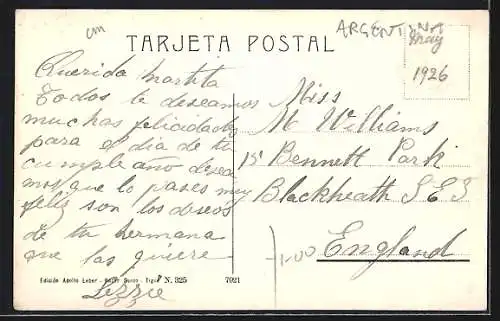 cm
ARGENTINA
May
1926
TARJETA POSTAL
Querida Martita
Todos te deseamos
muchas felicidades
para el dia de tu
cumpleaño desea
mos que lo pases muy
feliz son los deseos
de tu hermana
que las quiere
Lizzie
Miss
M Williams
15 Bennett Park
Blackheath S.E.3
England
1-00
Edición Apolo Leber - Foto Bueno - Trgu N. 325 7921